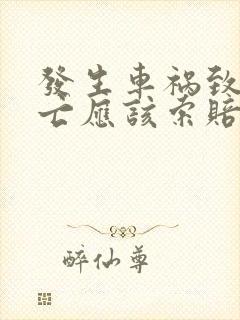 發生車禍致
亡應該索賠
醉仙尊